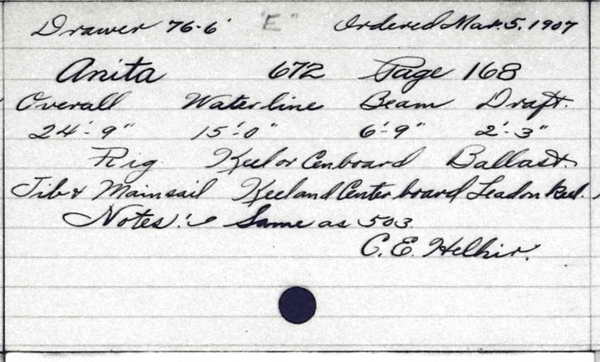 Drawer 76-6 "E" Ordered Mar. 5, 1907
Anita 672 Page 168
Overall Waterline Beam Draft.
24'-9" 15'-0" 6'-9" 2'-3"
Rig Keel or Cenboard Ballast
Jib & Mainsail Keel and Center board Lead on Keel.
Notes: Same as 503
C. E.